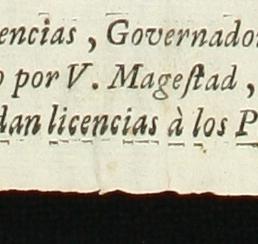 encias, Governador
o por V. Mageſtad,
dan licencias à los P